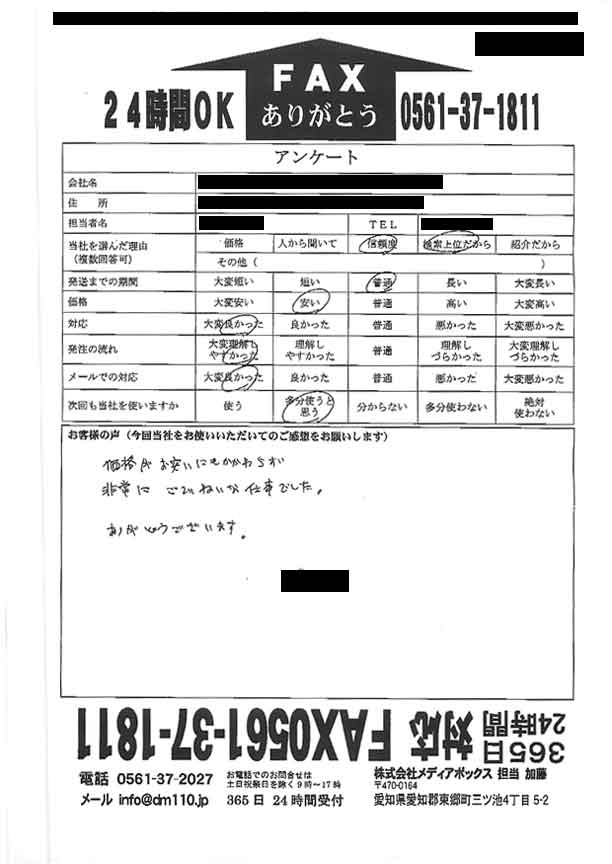 FAX
ありがとう
24時間OK
0561-37-1811
アンケート
会社名
住 所
担当者名 TEL
当社を選んだ理由(複数回答可) 価格 人から聞いて 信頼度 検索上位だから 紹介だから
その他( )
発送までの期間 大変短い 短い 普通 長い 大変長い
価格 大変安い 安い 普通 高い 大変高い
対応 大変良かった 良かった 普通 悪かった 大変悪かった
発注の流れ 大変理解しやすかった 理解しやすかった 普通 理解しづらかった 大変理解しづらかった
メールでの対応 大変良かった 良かった 普通 悪かった 大変悪かった
次回も当社を使いますか 使う 多分使うと思う 分からない 多分使わない 絶対使わない
お客様の声(今回当社をお使いいただいてのご感想をお願いします)
価格がお安いにもかかわらず
非常にごていねいな仕事でした。
ありがとうございます。
365日24時間対応 FAX0561-37-1811
電話 0561-37-2027
お電話でのお問合せは
土日祝祭日を除く9時〜17時
株式会社メディアボックス 担当 加藤
〒470-0164
メール info@dm110.jp
365日 24時間受付
愛知県愛知郡東郷町三ツ池4丁目5-2